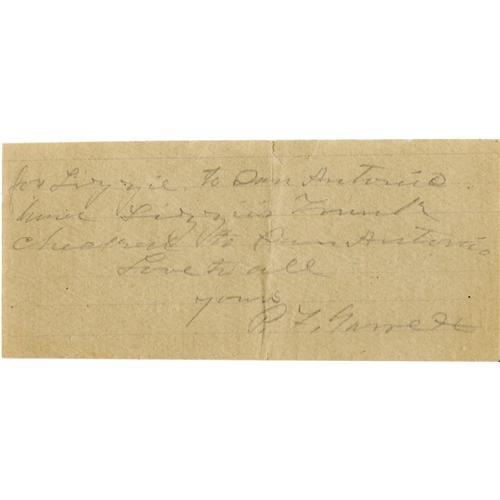 for Lizzie to San Antonio.
have Lizzie's Trunk
checked to San Antonio
Love to all
yours
P F Garrett